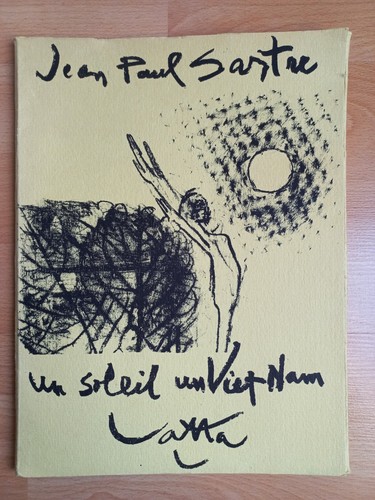 Jean Paul Sartre
un soleil un Viet-Nam
Matta